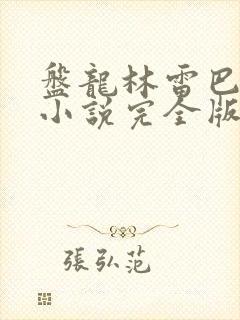 盤龍林雷巴
小說完全版
張弘范